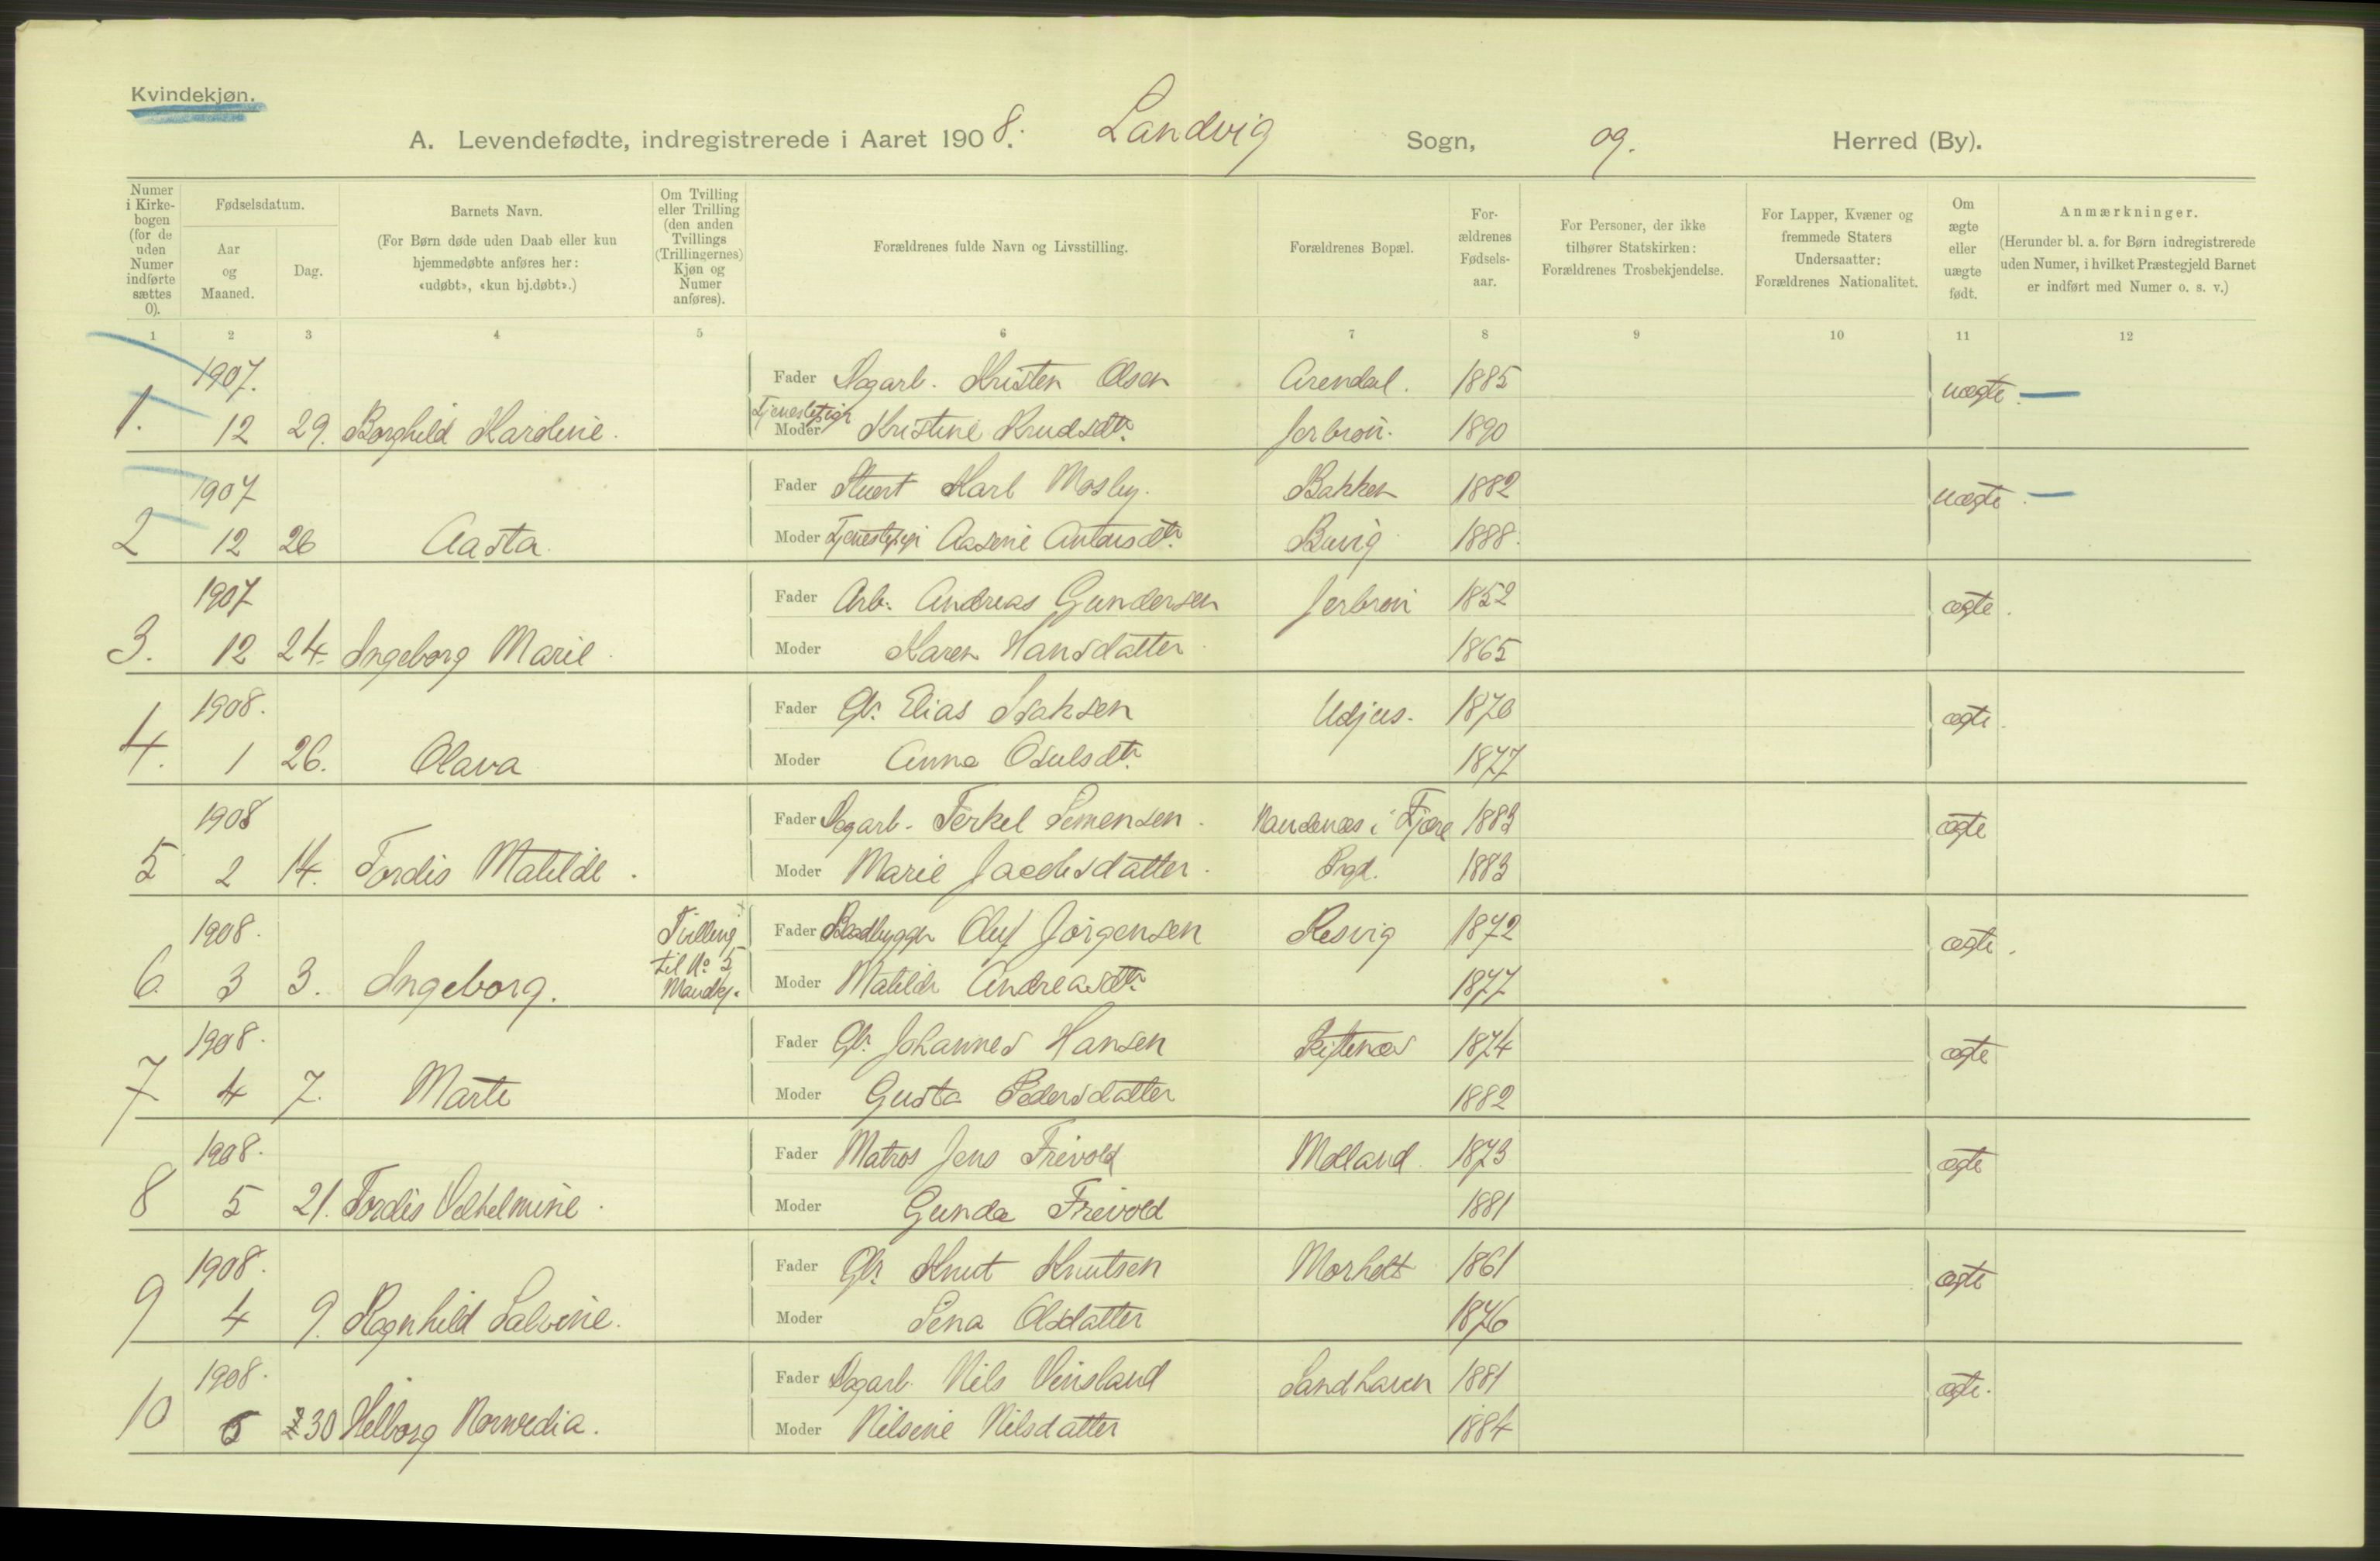 Kvindekjøn.
A. Levendefødte, indregistrerede i Aaret 1908. Landvig Sogn, og. Herred (By).
Numer i Kirke-bogen (for de uden Numer indførte sættes 0).
Fødselsdatum.
Aar og Maaned.
Dag.
Barnets Navn.
(For Børn døde uden Daab eller kun hjemmedøbte anføres her: «udøbt», «kun hj.døbt».)
Om Tvilling eller Trilling (den anden Tvillings (Trillingernes) Kjøn og Numer anføres).
Forældrenes fulde Navn og Livsstilling.
Forældrenes Bopæl.
For-ældrenes Fødsels-aar.
For Personer, der ikke tilhører Statskirken: Forældrenes Trosbekjendelse.
For Lapper, Kvæner og fremmede Staters Undersaatter: Forældrenes Nationalitet.
Om ægte eller uægte født.
Anmærkninger.
(Herunder bl. a. for Børn indregistrerede uden Numer, i hvilket Præstegjeld Barnet er indført med Numer o. s. v.)
1 2 3 4 5 6 7 8 9 10 11 12
1907. Fader Dagarb. Kristen Olsen Arendal. 1885 uægte. —
1. 12 29. Borghild Karoline. Tjenestepige Moder Kristine Knudsdtr. 1890
1907 Fader Karl Mosby. Bakken 1882 uægte. —
2 12 26 Aasta. Moder Tjenestepige Aasene Buvig 1888.
1907 Fader Arb. Andreas Gundersen 1852 ægte.
3. 12 24. Ingeborg Marie. Moder Karen Hansdatter 1865
1908. Fader Gbr. Elias Isaksen Udjus. 1870 ægte.
4. 1 26. Olava Moder Anna Osulsdtr. 1877
1908 Fader Dagarb. Terkel Simensen. i Fjære 1883 ægte
5 2 14. Tordis Matilde. Moder Marie Jacobsdatter. Prgd. 1883
1908. Tvilling Fader Baadbygger Oluf Jørgensen Resvig 1872 ægte.
6 3 3. Ingeborg. til No. 5 Mandkj. Moder Matilde Andreasdtr. 1877
1908. Fader Gbr. Johannes Hansen Reftenæs 1874 ægte
7 4 7. Marte Moder Gusta Pedersdatter 1882
1908. Fader Matros Jens Frivold Molland 1873 ægte
8 5 21. Tordis Velhelmine. Moder Gunda Frivold 1881
1908. Fader Gbr. Knut Knutsen Morholt 1861 ægte
9 4 9. Ragnhild Salvine. Moder Sena Olsdatter 1876
1908. Fader Dagarb. Nils Vinsland Sandhaven 1881 ægte.
10 5 30 Helborg Norvedia. Moder Nilsine Nilsdatter 1884